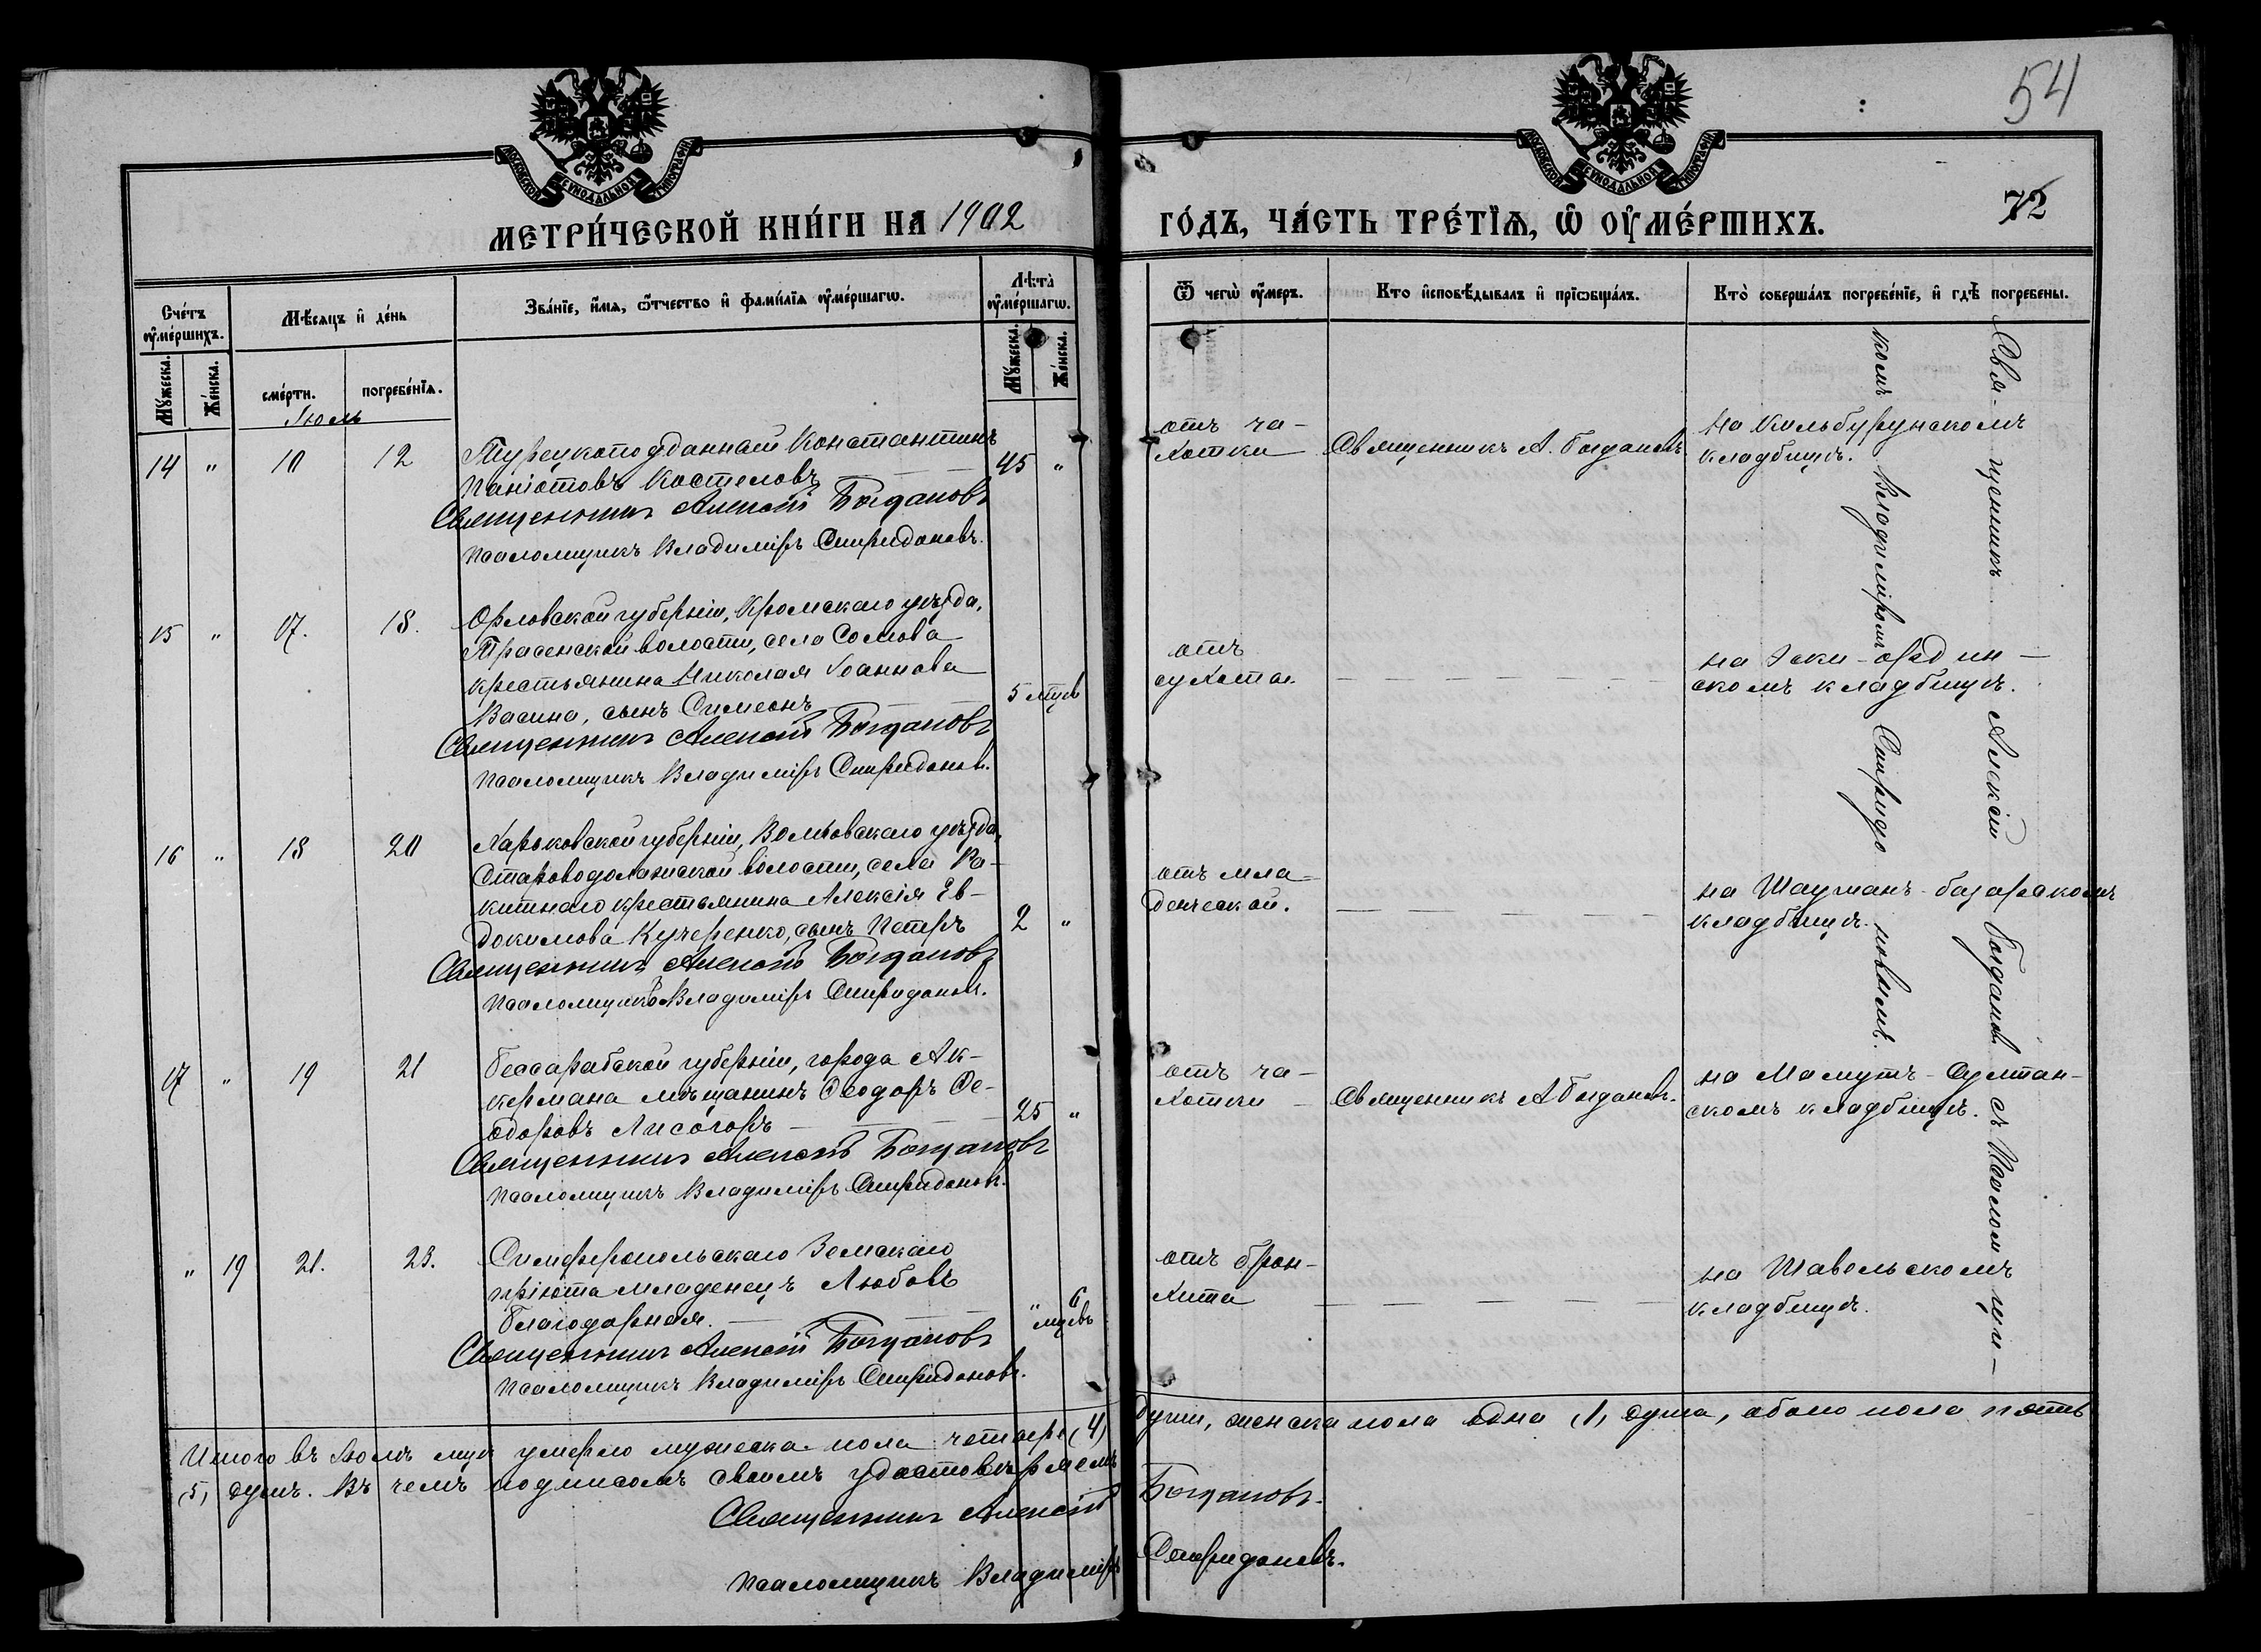 54
МОСКОВСКОЙ СѴНОДАЛЬНОЙ ТИПОГРАФІИ
МОСКОВСКОЙ СѴНОДАЛЬНОЙ ТИПОГРАФІИ
72
МЕТРИ́ЧЕСКОЙ КНИ́ГИ НА 1902
ГО́ДЪ, ЧА́СТЬ ТРЕ́ТЇѦ, Ѡ ОУ҆МЕ́РШИХЪ.
Сче́тъ оу҆ме́ршихъ.
Мѣ́сяцъ и҆ де́нь
Зва́нїе, и҆́мѧ, ѻ҆́тчество и҆ фами́лїѧ оу҆ме́ршагѡ.
Лѣ́та оу҆ме́ршагѡ.
Ѿ чегѡ̀ оу҆́меръ.
Кто и҆сповѣ́дывалъ и҆ прїѡбща́лъ.
Кто̀ соверша́лъ погребе́нїе, и҆ гдѣ̀ погребены.
Мꙋ́жеска.
Же́нска.
сме́рти.
погребе́нїѧ.
Мꙋ́жеска.
Же́нска.
Іюль
14 " 10 12 Турецкоподданный Константинъ
Паніотовъ Костеловъ 45 "
Священникъ Алексій Богдановъ
Псаломщикъ Владиміръ Спиридоновъ.
отъ ча-
хотки
Священникъ А. Богдановъ
на Кильбурунскомъ
кладбищѣ.
15 " 17. 18. Орловской губерніи, Кромскаго уѣзда,
волости, села Сомова
крестьянина Николая Іоаннова
Васина, сынъ Симеонъ 5 мцев
Священникъ Алексій Богдановъ
Псаломщикъ Владиміръ Спиридоновъ.
отъ
сухотъ.
на Эски-ордин-
скомъ кладбищѣ.
16 " 18 20 Харьковской губерніи, Валковскаго уѣзда,
Староводолажской волости, села Ра-
китнаго крестьянина Алексія Ев-
докимова Кучеренко, сынъ Петръ 2 "
Священникъ Алексій Богдановъ
Псаломщикъ Владиміръ Спиридоновъ.
отъ мла-
денческой.
на Шауманъ-базарскомъ
кладбищѣ.
17 " 19 21 Бессарабской губерніи, города Ак-
кермана мѣщанинъ Ѳеодоръ Ѳе-
одоровъ Лисогоръ 25 "
Священникъ Алексій Богдановъ
Псаломщикъ Владиміръ Спиридоновъ.
отъ ча-
хотки
Священникъ А Богдановъ.
на Мамутъ-Султан-
скомъ кладбищѣ.
" 19 21. 23. Симферопольскаго Земскаго
пріюта младенецъ Любовь
Благодарная. " 6 мцевъ
Священникъ Алексій Богдановъ
Псаломщикъ Владиміръ Спиридоновъ.
отъ брон-
хита
на Шавельскомъ
кладбищѣ.
Свя-щенникъ Алексій Богдановъ съ Псаломщи-
комъ Владиміромъ Спиридо новымъ.
Итого въ Іюлѣ мцѣ умерло мужеска пола четыре (4) души, женска пола одна (1) душа, обоего пола пять
(5) душъ. Въ чемъ подписомъ своимъ удостовѣряемъ
Священникъ Алексій Богдановъ.
Псаломщикъ Владиміръ Спиридоновъ.